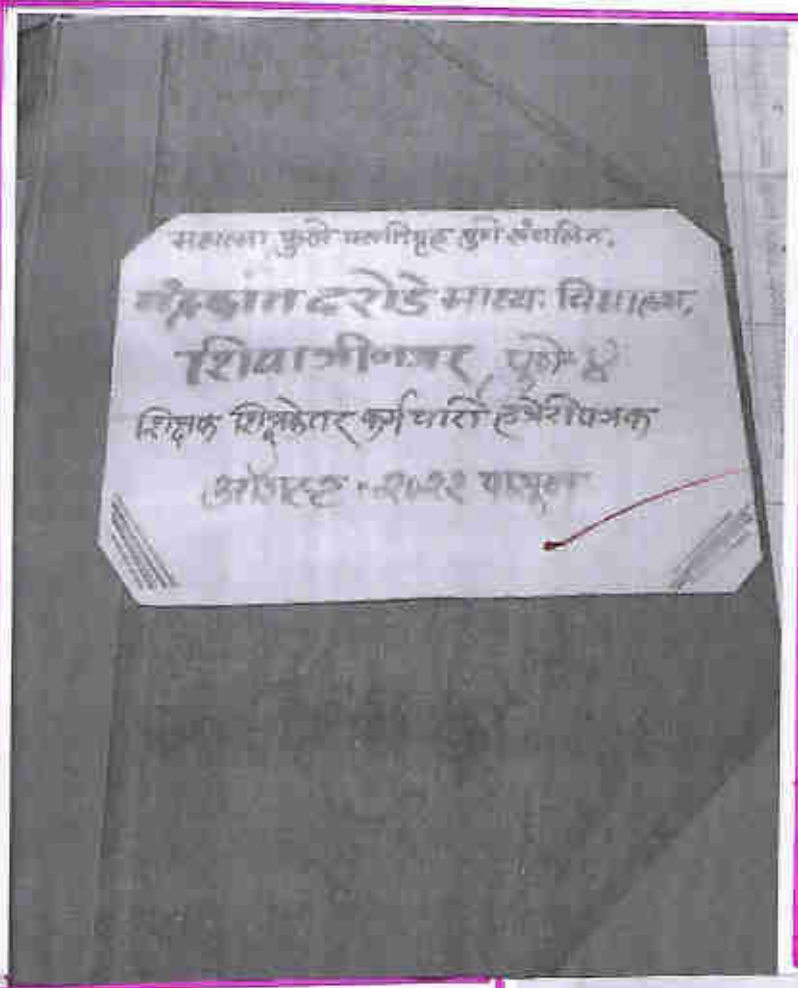 महात्मा फुले वसतिगृह पुणे संचलित,
चंद्रकांत दरोडे माध्य. विद्यालय,
शिवाजीनगर, पुणे-४
शिक्षक शिक्षकेतर कर्मचारी हजेरीपत्रक
ऑगस्ट - २०२२ पासून